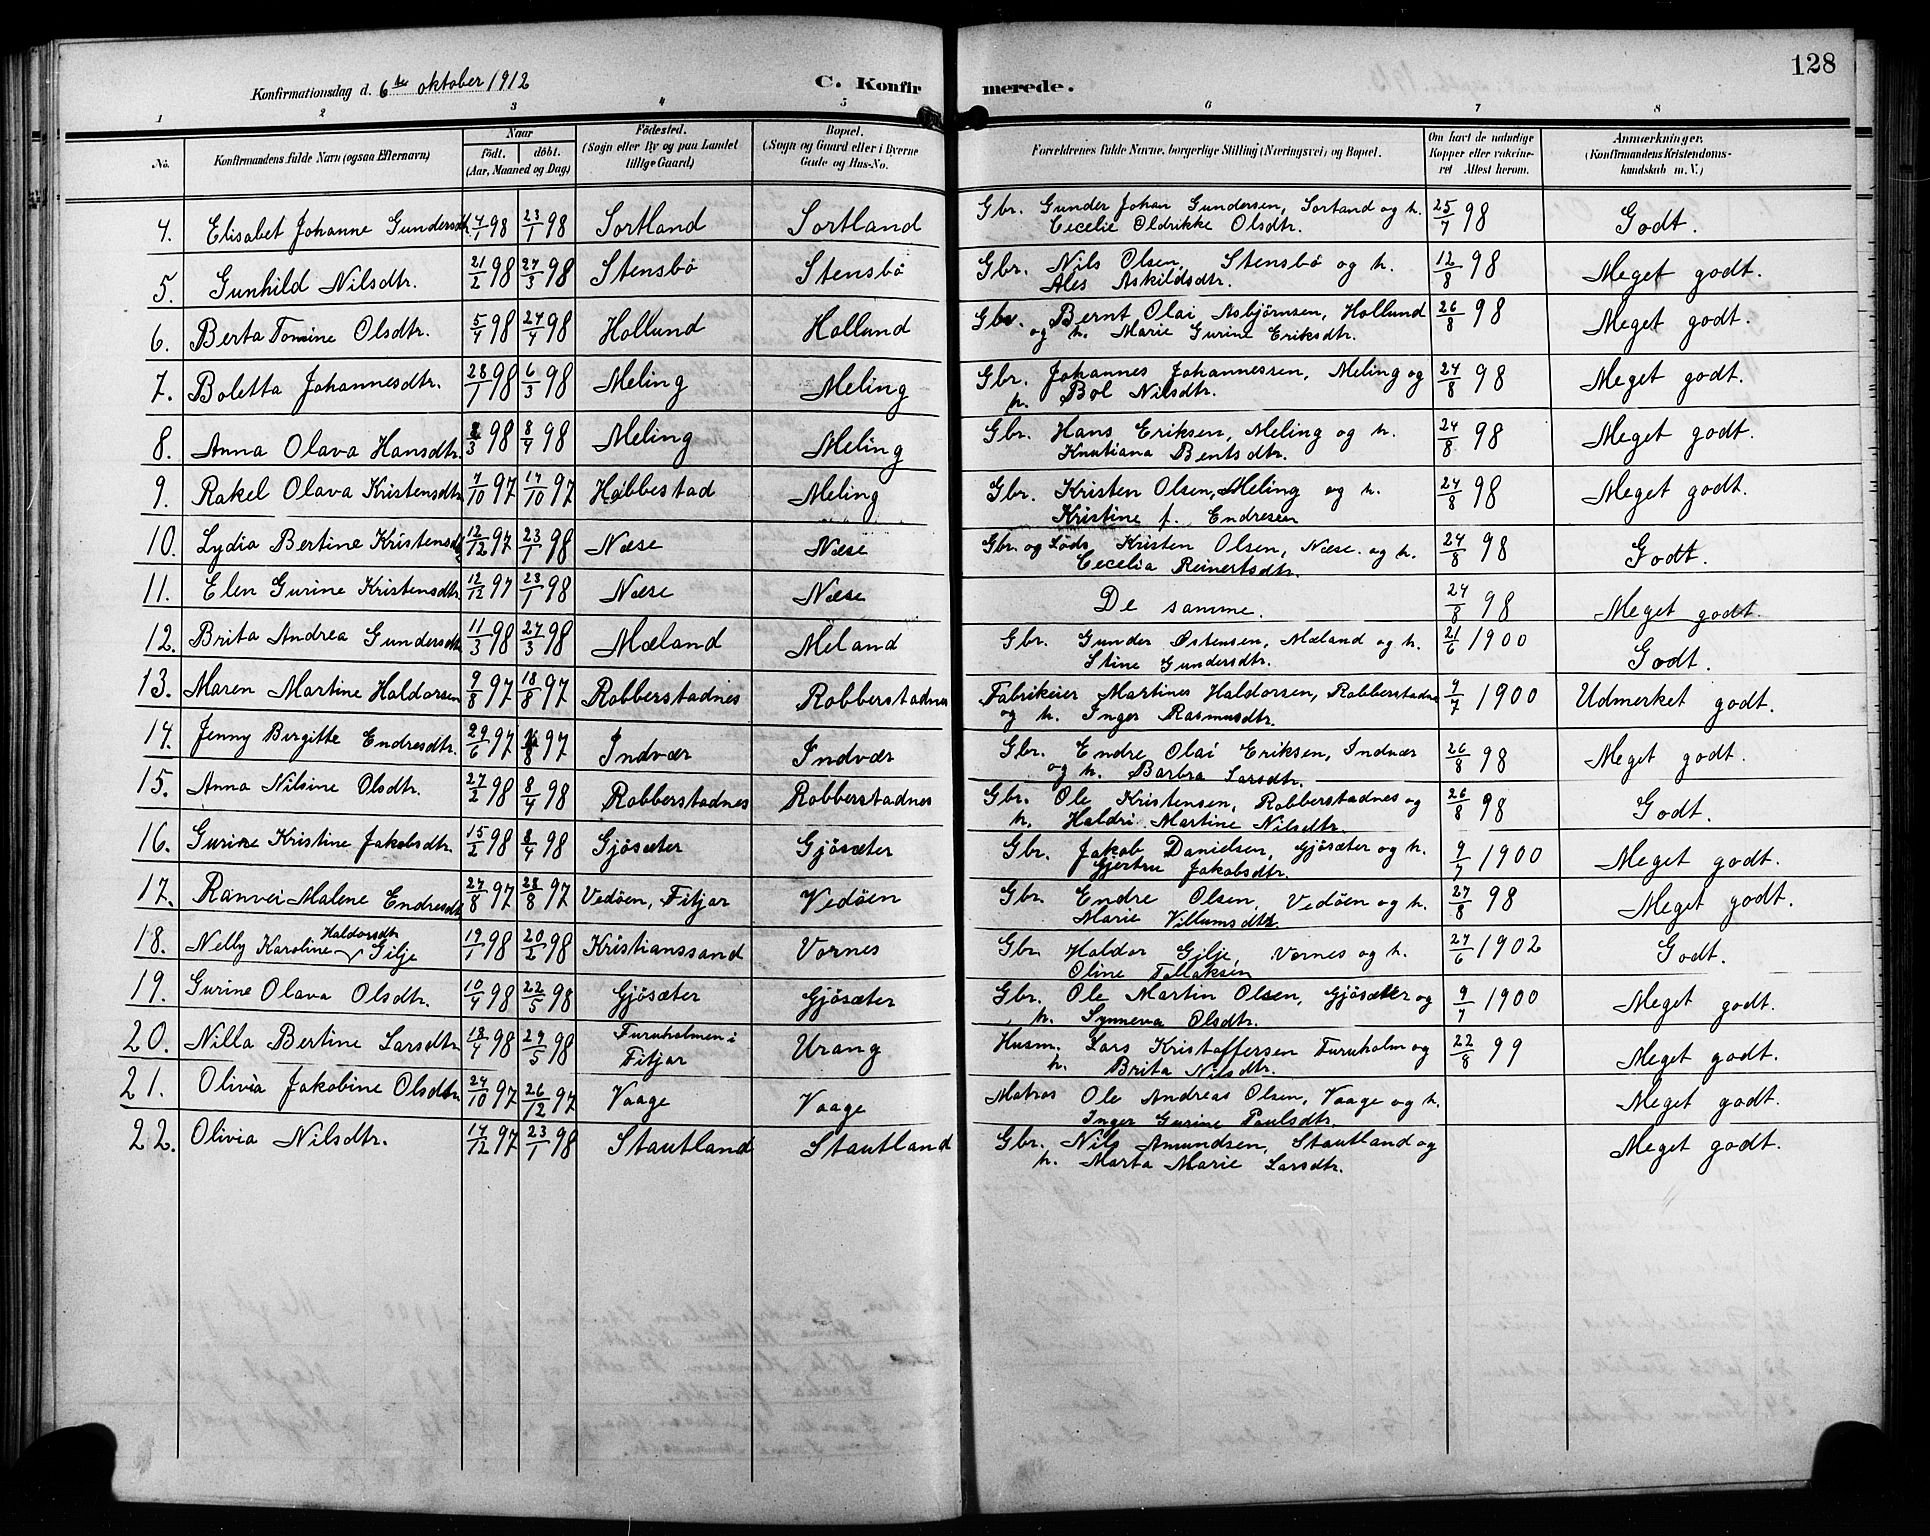 128
Konfirmationsdag d. 6te oktober 1912
C. Konfirmerede.
1 2 3 4 5 6 7 8
No. Konfirmandens fulde Navn (ogsaa Efternavn) Naar født. døbt. (Aar, Maaned og Dag) Fødested. (Sogn eller By og paa Landet tillige Gaard) Bopæl. (Sogn og Gaard eller i Byerne Gade og Hus-No. Forældrenes fulde Navne, borgerlige Stilling (Næringsvei) og Bopæl. Om havt de naturlige Kopper eller vakcineret Attest herom. Anmærkninger. (Konfirmandens Kristendomskundskab m. V.)
4. Elisabet Johanne Gundersdtr. 4/1 98 23/1 98 Sortland Sortland Gbr. Gunder Johan Gundersen, Sortand og h. Cecelie Oldrikke Olsdtr. 25/7 98 Godt.
5. Gunhild Nilsdtr. 21/2 98 27/3 98 Stensbö Stensbö Gbr. Nils Olsen, Stensbö og h. Ales Askildsdtr. 12/8 98 Meget godt.
6. Berta Tomine Olsdtr. 5/4 98 24/4 98 Hollund Hollund Gbr. Bernt Olai Asbjörnsen, Hollund og h. Marie Gurine Eriksdtr. 26/8 98 Meget godt.
7. Boletta Johannesdtr. 28/1 98 6/3 98 Meling Meling Gbr. Johannes Johannessen, Meling og h. Bol Nilsdtr. 24/8 98 Meget godt.
8. Anna Olava Hansdtr. /3 98 8/4 98 Meling Meling Gbr. Hans Eriksen, Meling og h. Knutiana Bentsdtr. 24/8 98 Meget godt.
9. Rakel Olava Kristensdtr 7/10 97 17/10 97 Habbestad Meling Gbr. Kristen Olsen, Meling og h. Kristine f. Endresen 24/8 98 Meget godt.
10. Lydia Bertine Kristensdtr 12/12 97 23/1 98 Næse Næse Gbr. og Lods Kristen Olsen, Næse og h. Cecelia Reinertsdtr. 24/8 98 Godt.
11. Elen Gurine Kristensdtr 12/12 97 23/1 98 Næse Næse De samme. 24/8 98 Meget godt.
12. Brita Andrea Gundersdtr 11/3 98 27/3 98 Mæland Meland Gbr. Gunder Østensen, Mæland og h. Stine Gundersdtr. 21/6 1900 Godt.
13. Maren Martine Haldorsen 9/8 97 18/8 97 Robberstadnes Robberstadnes Fabrikeier Martines Haldorsen, Robberstadne og h. Inger Rasmusdtr. 9/7 1900 Udmerket godt.
14. Jenny Birgitte Endresdtr. 29/6 97 /8 97 Indvær Indvær Gbr. Endre Olai Eriksen, Indvær og h. Barbra Larsdtr. 26/8 98 Meget godt.
15. Anna Nilsine Olsdtr. 27/2 98 8/4 98 Robberstadnes Robberstadnes Gbr. Ole Kristensen, Robberstadnes og h. Haldri Martine Nilsdtr. 26/8 98 Godt.
16. Gurine Kristine Jakobsdtr. 15/2 98 8/4 98 Gjösæter Gjösæter Gbr. Jakob Danielsen, Gjösæter og h. Gjertru Jakobsdtr. 9/7 1900 Meget godt.
17. Ranvei Malene Endresdtr 27/8 97 28/8 97 Vedöen, Fitjar Vedöen Gbr. Endre Olsen, Vedöen og h. Marie Villumsdtr. 27/8 98 Meget godt.
18. Nelly Karoline Haldorsdtr Gilje 19/1 98 20/2 98 Kristianssand Vornes Gbr. Haldor Gilje, Vornes og h. Oline Tollaksen 27/6 1902 Godt.
19. Gurine Olava Olsdtr. 10/4 98 22/5 98 Gjösæter Gjösæter Gbr. Ole Martin Olsen, Gjösæter og h. Synneva Olsdtr. 9/7 1900 Meget godt.
20. Nilla Bertine Larsdtr 18/4 98 29/5 98 Furuholmen i Fitjar Urang Husm. Lars Kristoffersen Furuholm og h. Brita Nilsdtr. 22/8 99 Meget godt.
21. Olivia Jakobine Olsdtr 24/10 97 26/12 97 Vaage Vaage Matros Ole Andreas Olsen, Vaage og h. Inger Gurine Paulsdtr. Meget godt.
22. Olivia Nilsdtr. 14/12 97 23/1 98 Stautland Stautland Gbr. Nils Amundsen, Stautland og h. Marta Marie Larsdtr. Meget godt.